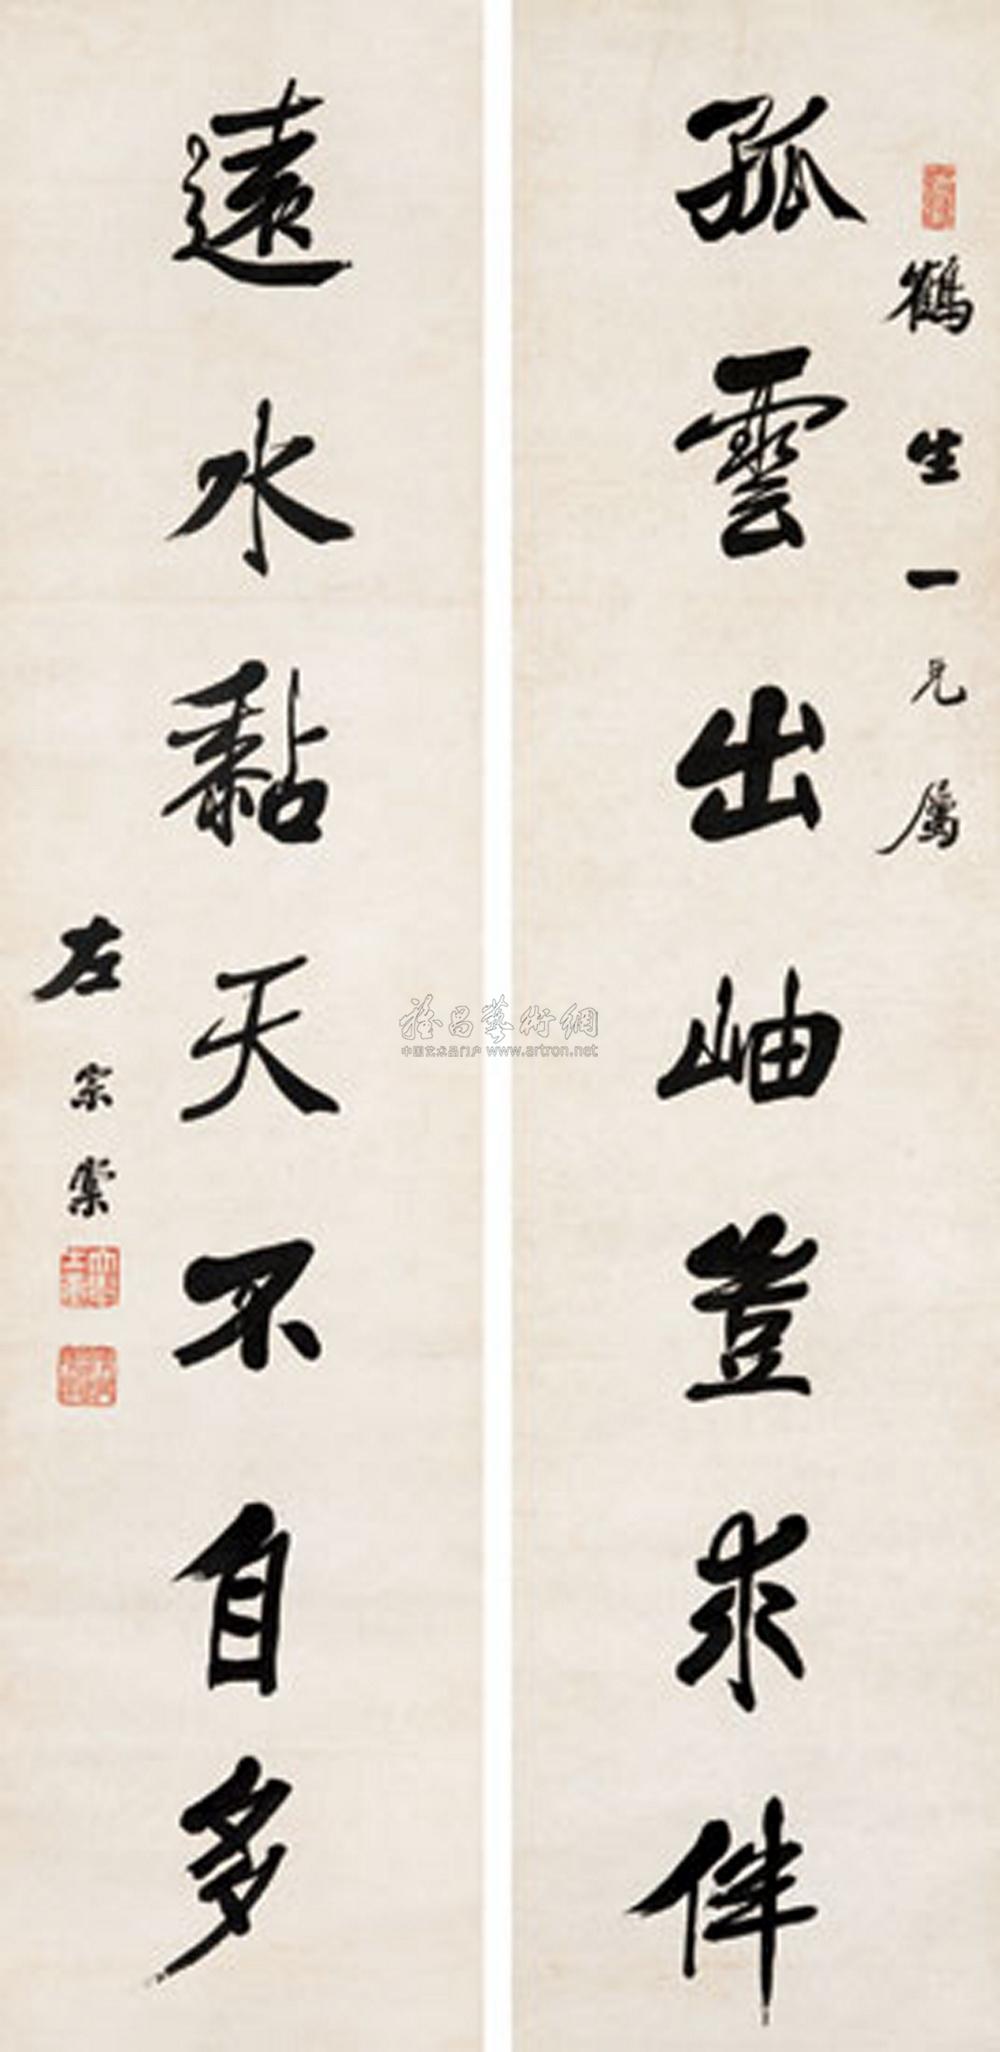 鶴生一兄屬
孤雲出岫豈求伴
遠水黏天不自多
左宗棠
雅昌藝術網
中国艺术品门户 www.artron.net